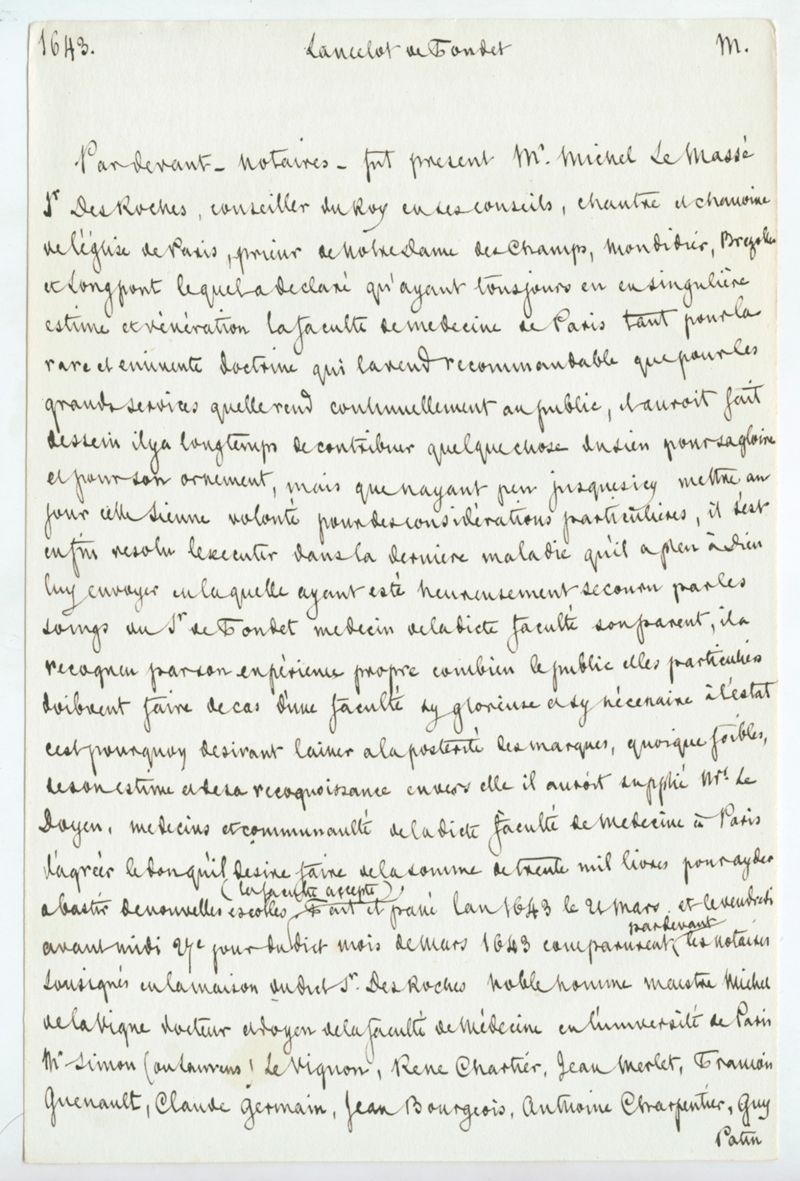 1643. Lancelot de Frondet M.
Par devant – notaires – fut present Mr. Michel Le Massé
Sr Des Roches, conseiller du Roy en ses conseils, chantre et chanoine
de l'église de Paris, prieur de Notre Dame des Champs, Mondidier, Brezolles
et Longpont lequel a declaré qu'ayant tousjours eu en singulière
estime et vénération la faculté de medecine de Paris tant pour la
rare et eminente doctrine qui la rend recommandable que pour les
grands services quelle rend continuellement au public, il auroit fait
dessein il y a longtemps de contribuer quelque chose du sien pour sa gloire
et pour son ornement, mais que nayant peu jusques icy mettre au
jour cette sienne volonté pour des considérations particulières, il s'est
enfin resolu lexecuter dans la derniere maladie qu'il a pleu à Dieu
luy envoyer en laquelle ayant esté heureusement secouru par les
soings du Sr de Frondet medecin de la dicte faculté son parent, il a
recogneu par son expérience propre combien le public et les particuliers
doibvent faire de cas d'une faculté sy glorieuse et sy nécessaire à l'estat
cest pourquoy desirant laisser a la posterité des marques, quoique foibles,
de son estime et de sa recognoissance envers elle il auroit supplié Mrs. Le
Doyen, medecins et communaulté de la dicte Faculté de Medecine à Paris
d'agréer le don qu'il desire faire de la somme de trente mil livres pour ayder
a bastir de nouvelles escolles (la faculté accepte), Fait et passé lan 1643 le 21 Mars. et le vendredi
avant midi 27e jour du dict mois de Mars 1643 comparurent pardevant les notaires
sousignés en la maison du dict Sr. Des Roches noble homme maistre Michel
de la Vigne docteur et doyen de la faculté de Médecine en l'université de Paris
Mr Simon (ou Laurens) Le Vignon, Rene Chartier, Jean Merlet, Francois
Guenault, Claude Germain, Jean Bourgeois, Anthoine Charpentier, Guy
Patin